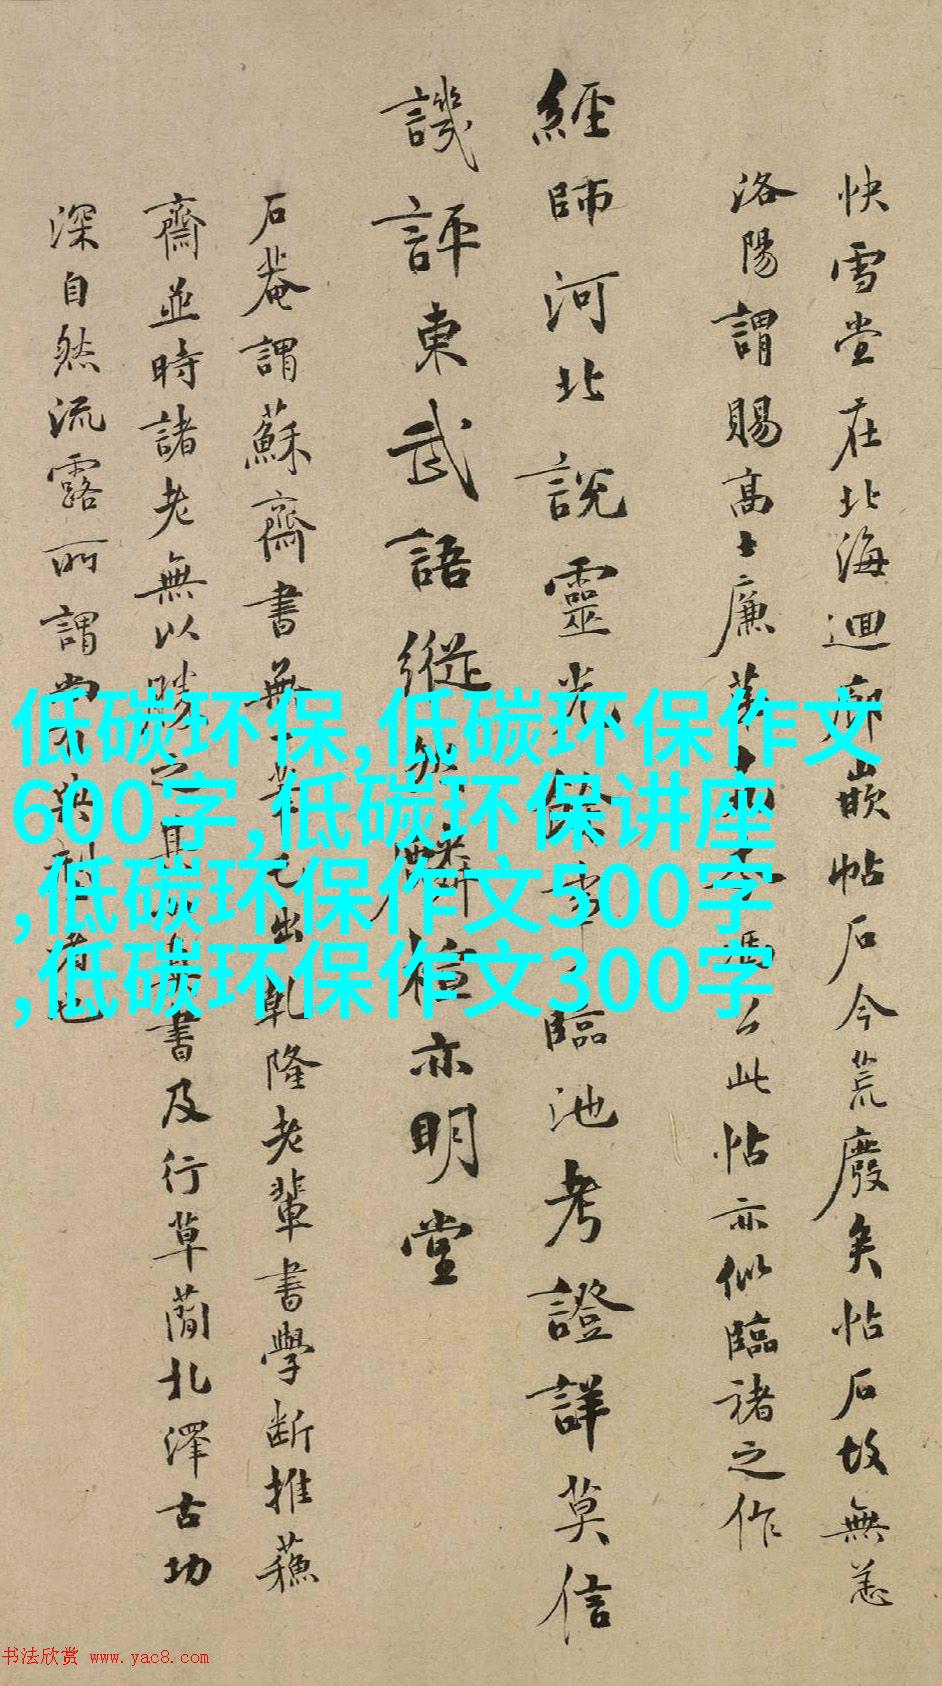 快雪堂在北海迴廊嵌帖石今荒廢矣帖石故無恙
洛陽謂賜高士廉
公此帖亦似臨褚之作
經師河北說靈光
臨池考證詳莫信
譏評東武語縱然
亦明堂
石菴謂蘇齋書無
出乾隆老輩書學斷推蘇
齋並時諸老無以勝之
書及行草蘭北澤古功
深自然流露所謂
也
低碳环保,低碳环保作文
600字,低碳环保讲座
,低碳环保作文500字
,低碳环保作文300字
书法欣赏 www.yac8.com